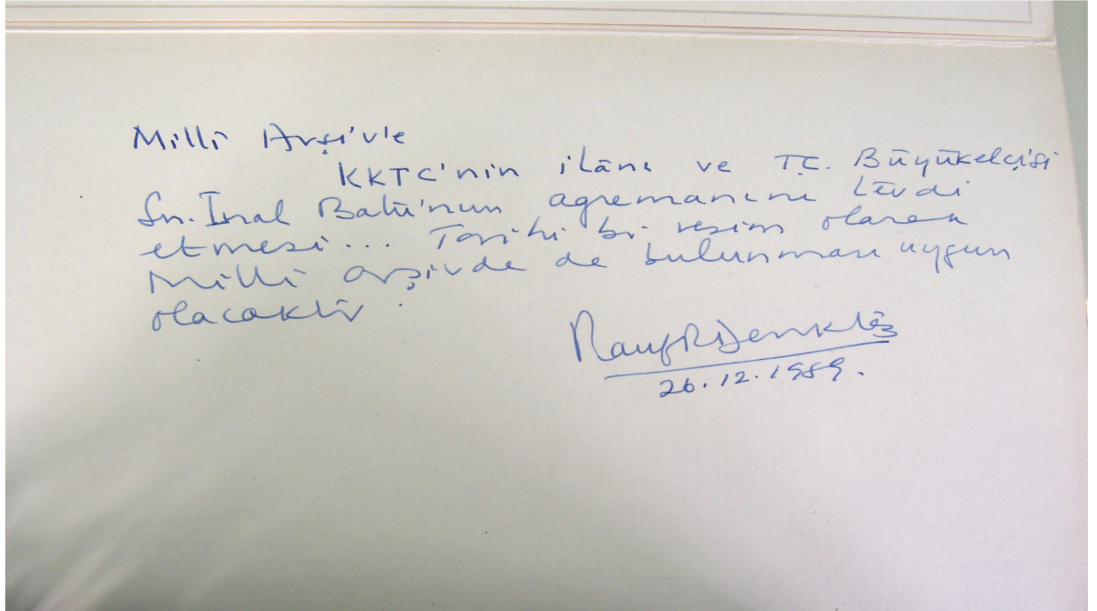 Milli Arşiv'e
KKTC'nin ilânı ve T.C. Büyükelçisi
Sn. İnal Batü'nun agremanını tevdi
etmesi... Tarihi bi resim olarak
Milli arşivde de bulunması uygun
olacaktır.
Rauf R Denktaş
26.12.1989.